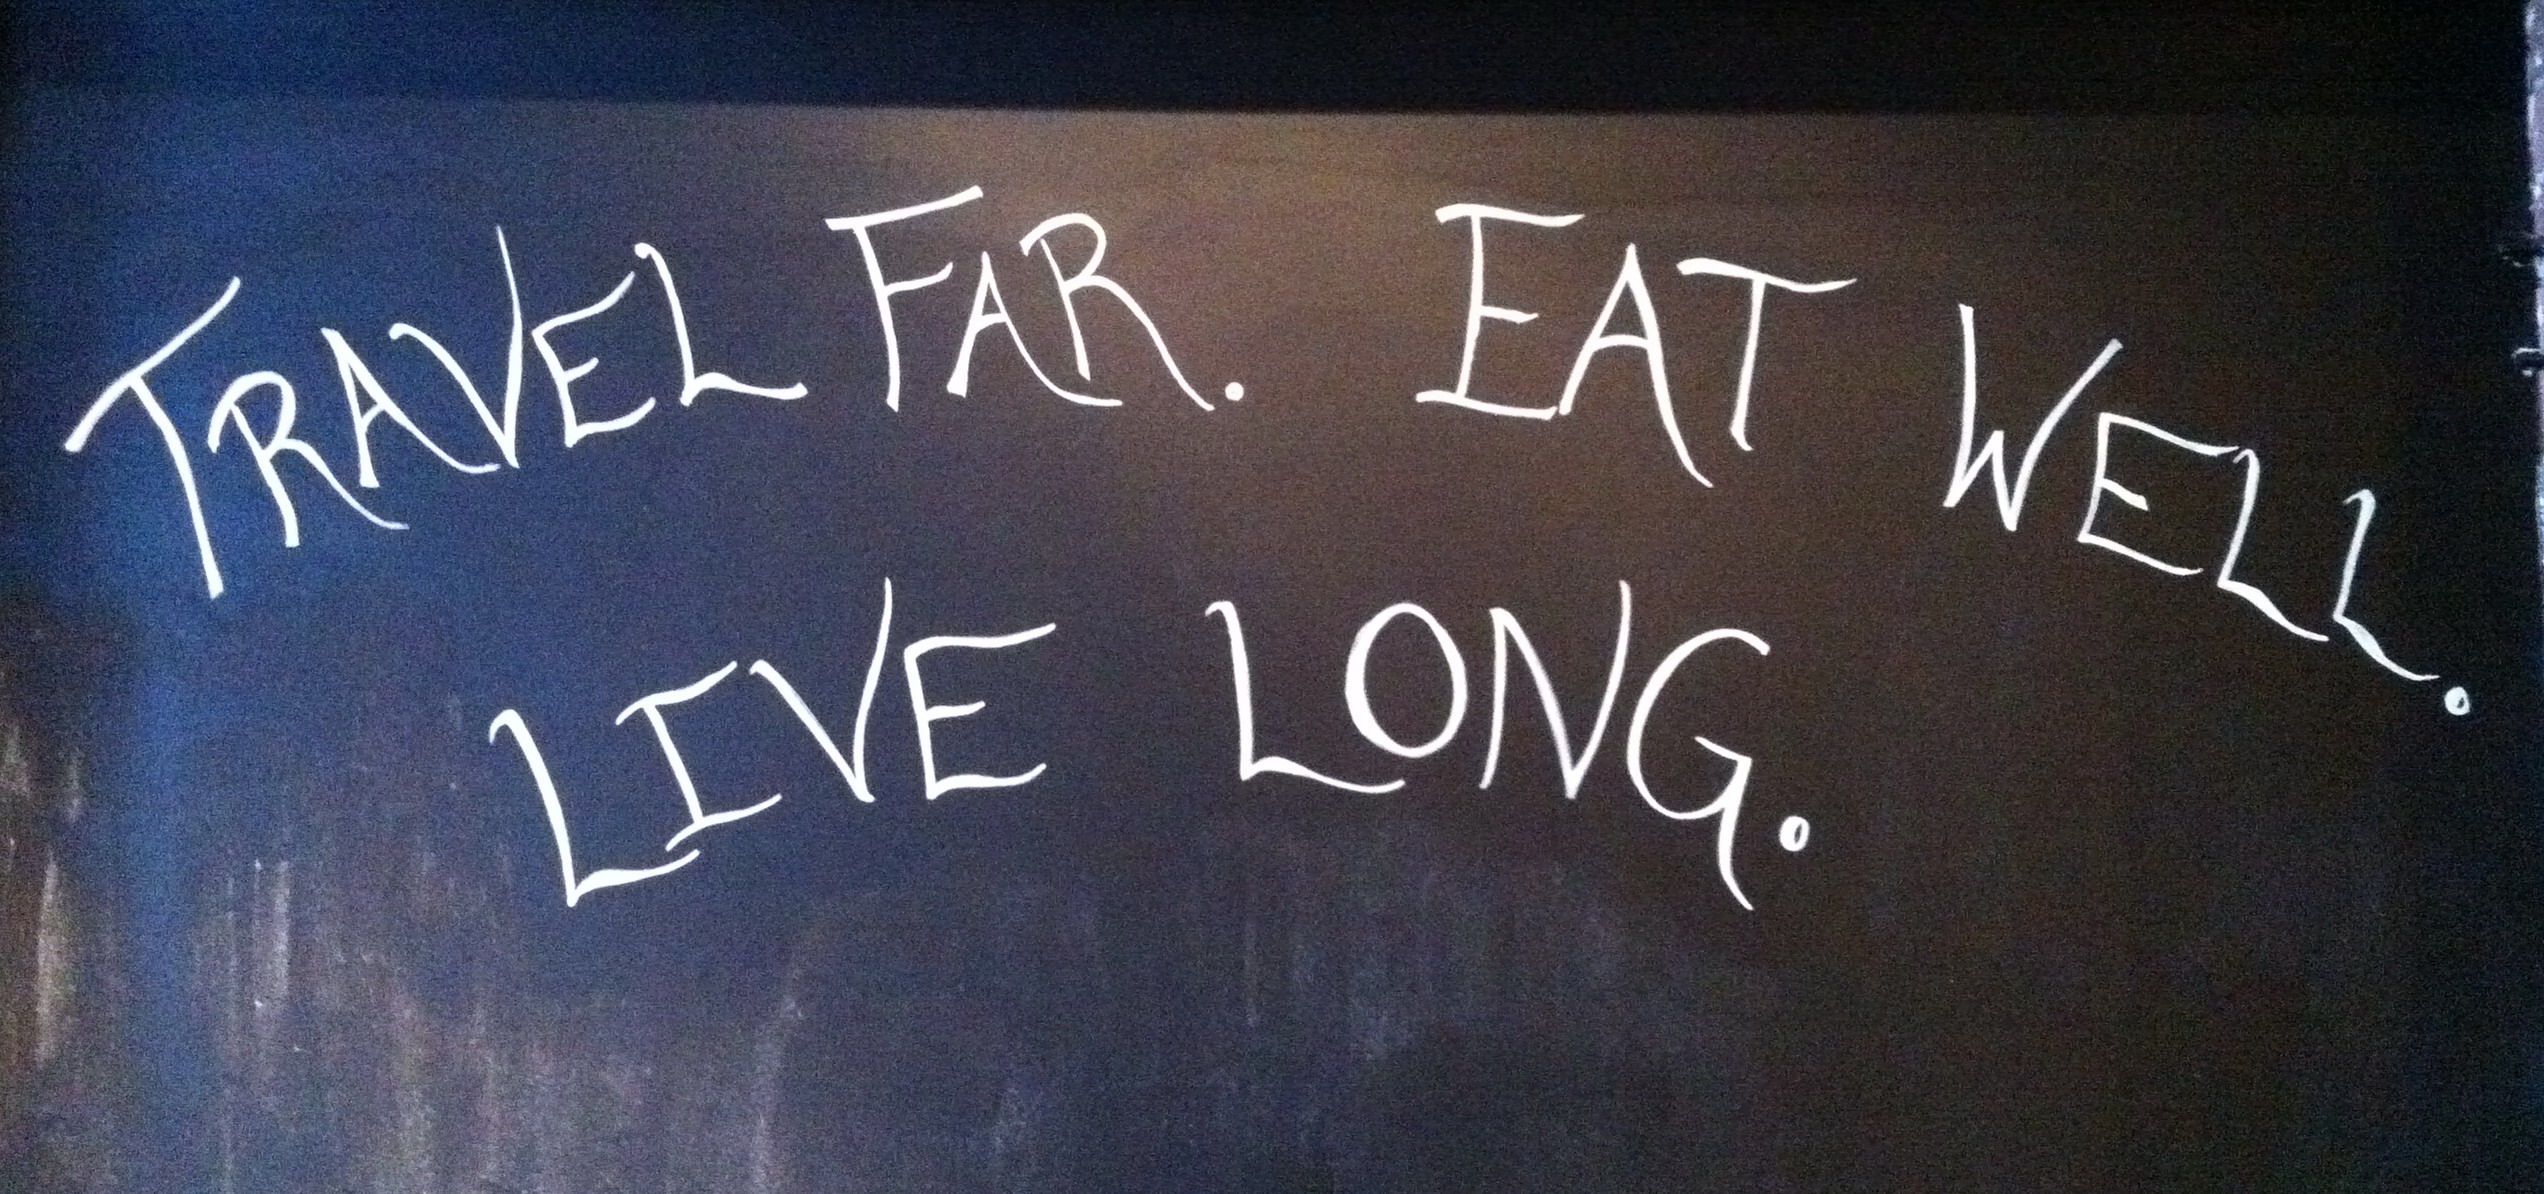 TRAVEL FAR. EAT WELL.
LIVE LONG.